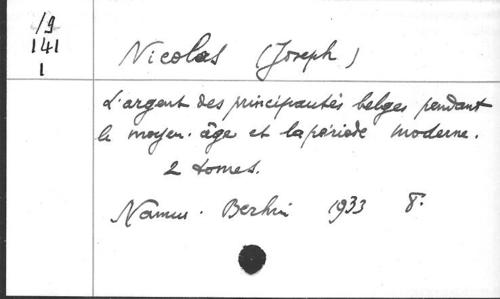 19
141
1
Nicolas (Joseph)
L'argent des principautés belges pendant
le moyen-âge et la période moderne.
2 tomes.
Namur. 1933 8°.